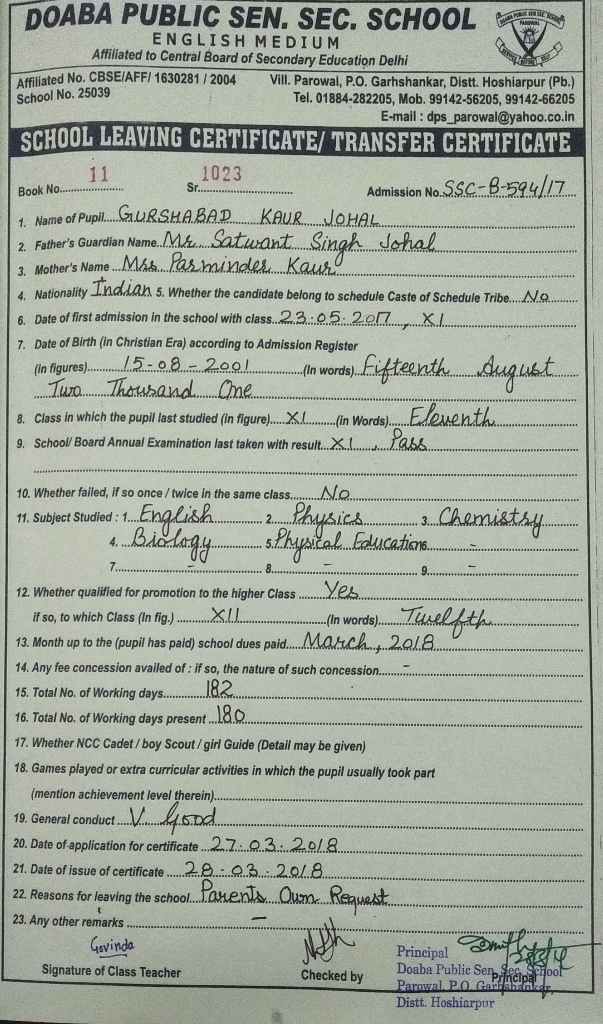 DOABA PUBLIC SEN. SEC. SCHOOL
ENGLISH MEDIUM
Affiliated to Central Board of Secondary Education Delhi
Affiliated No. CBSE/AFF/ 1630281 / 2004 Vill. Parowal, P.O. Garhshankar, Distt. Hoshiarpur (Pb.)
School No. 25039 Tel. 01884-282205, Mob. 99142-56205, 99142-66205
E-mail : dps_parowal@yahoo.co.in
SCHOOL LEAVING CERTIFICATE/ TRANSFER CERTIFICATE
Book No. 11 Sr. 1023 Admission No. SSC-B-594/17
1. Name of Pupil. GURSHABAD KAUR JOHAL
2. Father's Guardian Name. Mr. Satwant Singh Johal
3. Mother's Name Mrs. Parminder Kaur
4. Nationality Indian 5. Whether the candidate belong to schedule Caste of Schedule Tribe. No
6. Date of first admission in the school with class. 23.05.2017, XI
7. Date of Birth (in Christian Era) according to Admission Register
(in figures) 15-08-2001 (In words). Fifteenth August
Two Thousand One
8. Class in which the pupil last studied (in figure). XI (in Words). Eleventh
9. School/ Board Annual Examination last taken with result. XI, Pass
10. Whether failed, if so once / twice in the same class. No
11. Subject Studied : 1. English 2. Physics 3. Chemistry
4. Biology 5. Physical Education -
7. - 8. - 9. -
12. Whether qualified for promotion to the higher Class Yes
if so, to which Class (In fig.) XII (In words). Twelfth
13. Month up to the (pupil has paid) school dues paid. March, 2018
14. Any fee concession availed of : if so, the nature of such concession. -
15. Total No. of Working days. 182
16. Total No. of Working days present 180
17. Whether NCC Cadet / boy Scout / girl Guide (Detail may be given)
18. Games played or extra curricular activities in which the pupil usually took part
(mention achievement level therein)
19. General conduct V. Good
20. Date of application for certificate 27.03.2018
21. Date of issue of certificate 28.03.2018
22. Reasons for leaving the school. Parents Own Request
23. Any other remarks -
Govinda
Signature of Class Teacher Checked by Principal
Principal
Doaba Public Sen. Sec. School
Parowal, P.O. Garhshankar,
Distt. Hoshiarpur